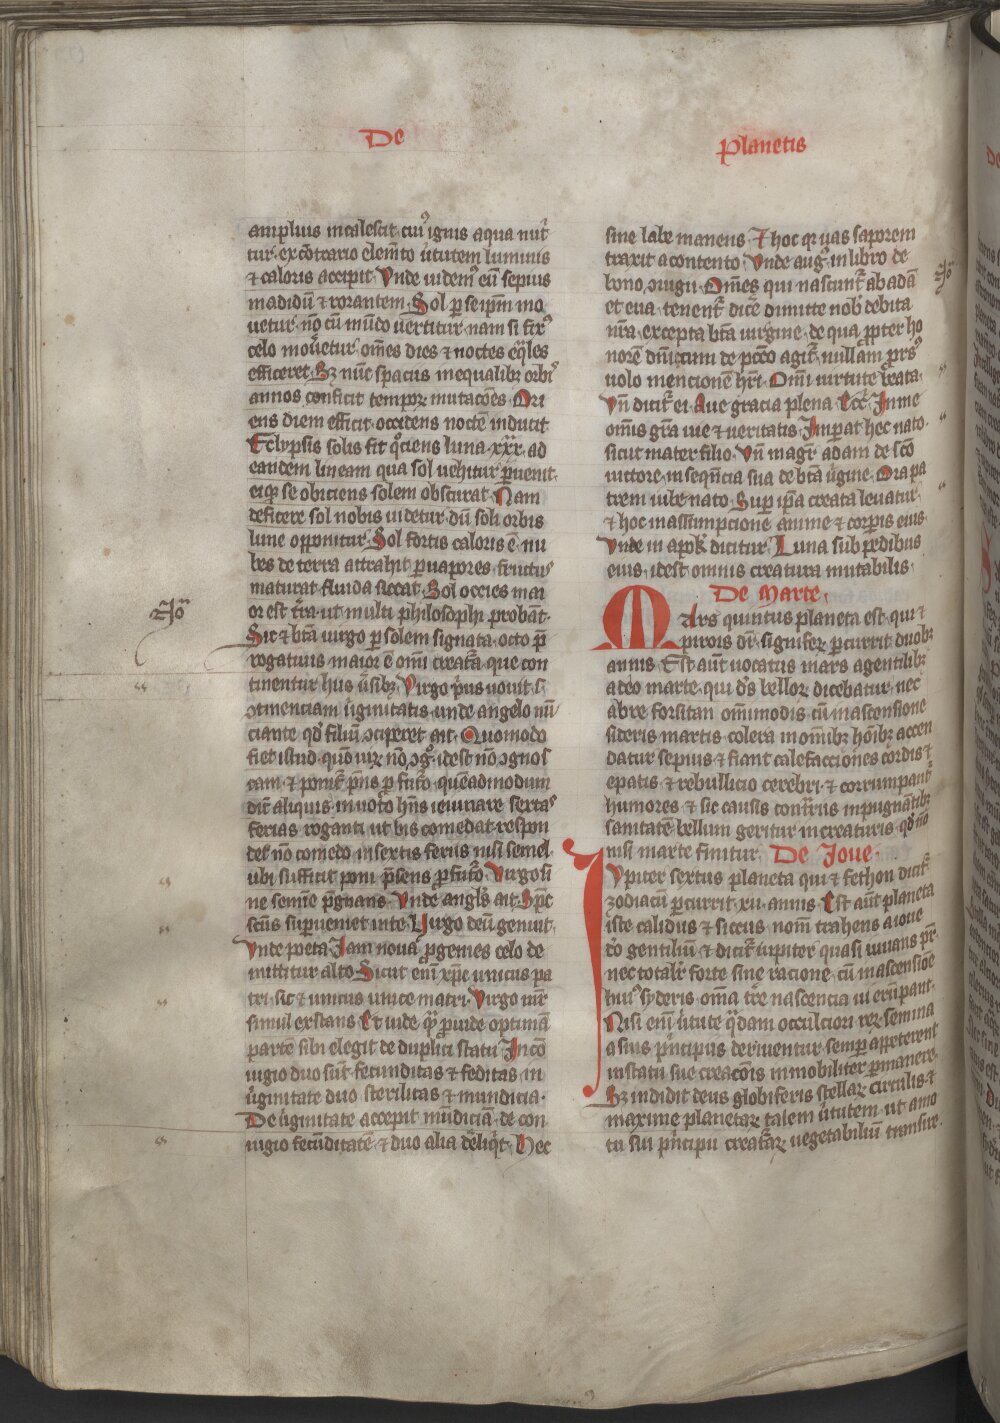 De
Planetis
amplius incalescit cuiꝰ ignis aqua nut̃
tur ex cõtrario elem̃to ũtutem luminis
⁊ caloris accipit Vnde uidemꝰ eũ sepius
madidũ ⁊ rorantem Sol ꝑ seip̃m mo
uetur nõ cũ mũdo uertitur nam si fixꝰ
celo mou̾etur om̃es dies ⁊ noctes eq̃les
efficeret Sꝫ nũc spacijs inequalibꝫ orbẽ
annos conficit tempoꝝ mutacões Ori
ens diem efficit occidens noctẽ inducit
Eclypsis solis fit q̊ciens luna xxx ad
eandem lineam qua sol uehitur ꝑuenit
eiqꝫ se obiciens solem obscurat Nam
deficere sol nobis uidetur dũ soli orbis
lune opponitur Sol fortis caloris ẽ nu
bes de terra attrahit ꝑ uapores fructus
maturat fluida siccat Sol octies mai
or est t̃ra ut multi philosophi probãt
Sic ⁊ bt̃a uirgo ꝑ solem signata octo p̃
rogatiuis maior ẽ om̃i creat̃a que con
tinentur hijs ũsibꝫ Virgo p̃us uouit
ↄtinenciam ũginitatis unde angelo nũ
ciante qd̓ filiũ ↄciperet ait Quomodo
fiet istud quõ uiꝝ nõ ↄgͦ idest nõ ↄgnos
cam ⁊ ponit̃ p̃ns ꝓ fut̃o quẽadmodum
dic̃t aliquis in uoto hñs ieiunare sextas
ferias roganti ut bis comedat respon
det nõ comedo in sextis ferijs nisi semel
ubi sufficit poni p̃sens ꝓ fut̃o Virgo si
ne sem̃ie p̃gnans Vnde angl̃s ait Sp̃c
sc̃ũs supueniet in te Virgo deũ genuit
Vnde poeta Iam noua ꝓgenies celo de
mittitur alto Sicut eni᷑ xp̃c unicus pa
tri sic ⁊ unicus unice matri Virgo mr̃
simul exstans Et uide qp̃ ꝓuide optimã
partẽ sibi elegit de duplici statu In cõ
iugio duo sũt fecunditas ⁊ feditas in
ũginitate duo sterilitas ⁊ mundicia
De ũginitate accepit mũdiciã de con
iugio fecũditatẽ ⁊ duo alia deliq̃t Hec
sine labe manens ⁊ hoc qr uas saporem
traxit a contento Vnde augꝰ in libro de
bono ↄiugij Om̃es qui nascunt̃ ab adã
et eua tenent̃ dic̃e dimitte nob̃ debita
nr̃a excepta bt̃a uirgine de qua ꝓpter ho
norẽ dñicum de pcc̃o agit̃ nullam ꝓrsꝰ
uolo mencionẽ hr̃i Om̃i uirtute beata
Vñ dicit̃ ei Aue gracia plena Ecc̃ In me
om̃is gr̃a uie ⁊ ueritatis Imperat hec nato
sicut mater filio Vñ magr̃ adam de sc̃o
uictore in seq̃ncia sua de bt̃a ũgine Ora pa
trem iube nato Super ip̃a creata leuatur
⁊ hoc in assumpcione anime ⁊ corꝑis eius
Vnde in apok̃ dicitur Luna sub pedibus
eius idest omnis creatura mutabilis
De Marte
Mars quintus planeta est qui ⁊
pirois dr̃ signifeꝝ ꝑcurrit duobꝫ
annis Est aũt uocatus mars a gentilibꝫ
a deo marte qui dẽs belloꝝ dicebatur nec
ab re forsitan om̃imodis cũ in ascensione
sideris martis colera in om̃ibꝫ hõibꝫ accen
datur sepius ⁊ fiant calefacciones cordis ⁊
epatis ⁊ rebullicio cerebri ⁊ corrumpant̃
humores ⁊ sic causis cont̃rijs inpugnãtibꝫ
sanitatẽ bellum geritur in creaturis qd̓ nõ
nisi marte finitur De Ioue
Iupiter sextus planeta qui ⁊ fethon dicit̃
zodiacũ ꝑcurrit xij annis Est aũt planeta
iste calidus ⁊ siccus nom̃ trahens a ioue
d̓o gentiliũ ⁊ dicit̃ iupiter quasi iuuans p̃r
nec totalr̃ forte sine racione cũ in ascensiõe
huiꝰ syderis om̃ia t̃re nascencia ui erũpant
Nisi eni᷑ ũtute q̃dam occulciori reꝝ semina
a suis p̃ncipijs deriuentur semꝑ appeterent
in statu sue creacõis inmobiliter ꝑmanere
Sꝫ indidit deus globiferis stellaꝝ circulis ⁊
maxime planetaꝝ talem ũtutem ut a mo
tu sui p̃ncipij creat̃aꝝ uegetabiliũ transire